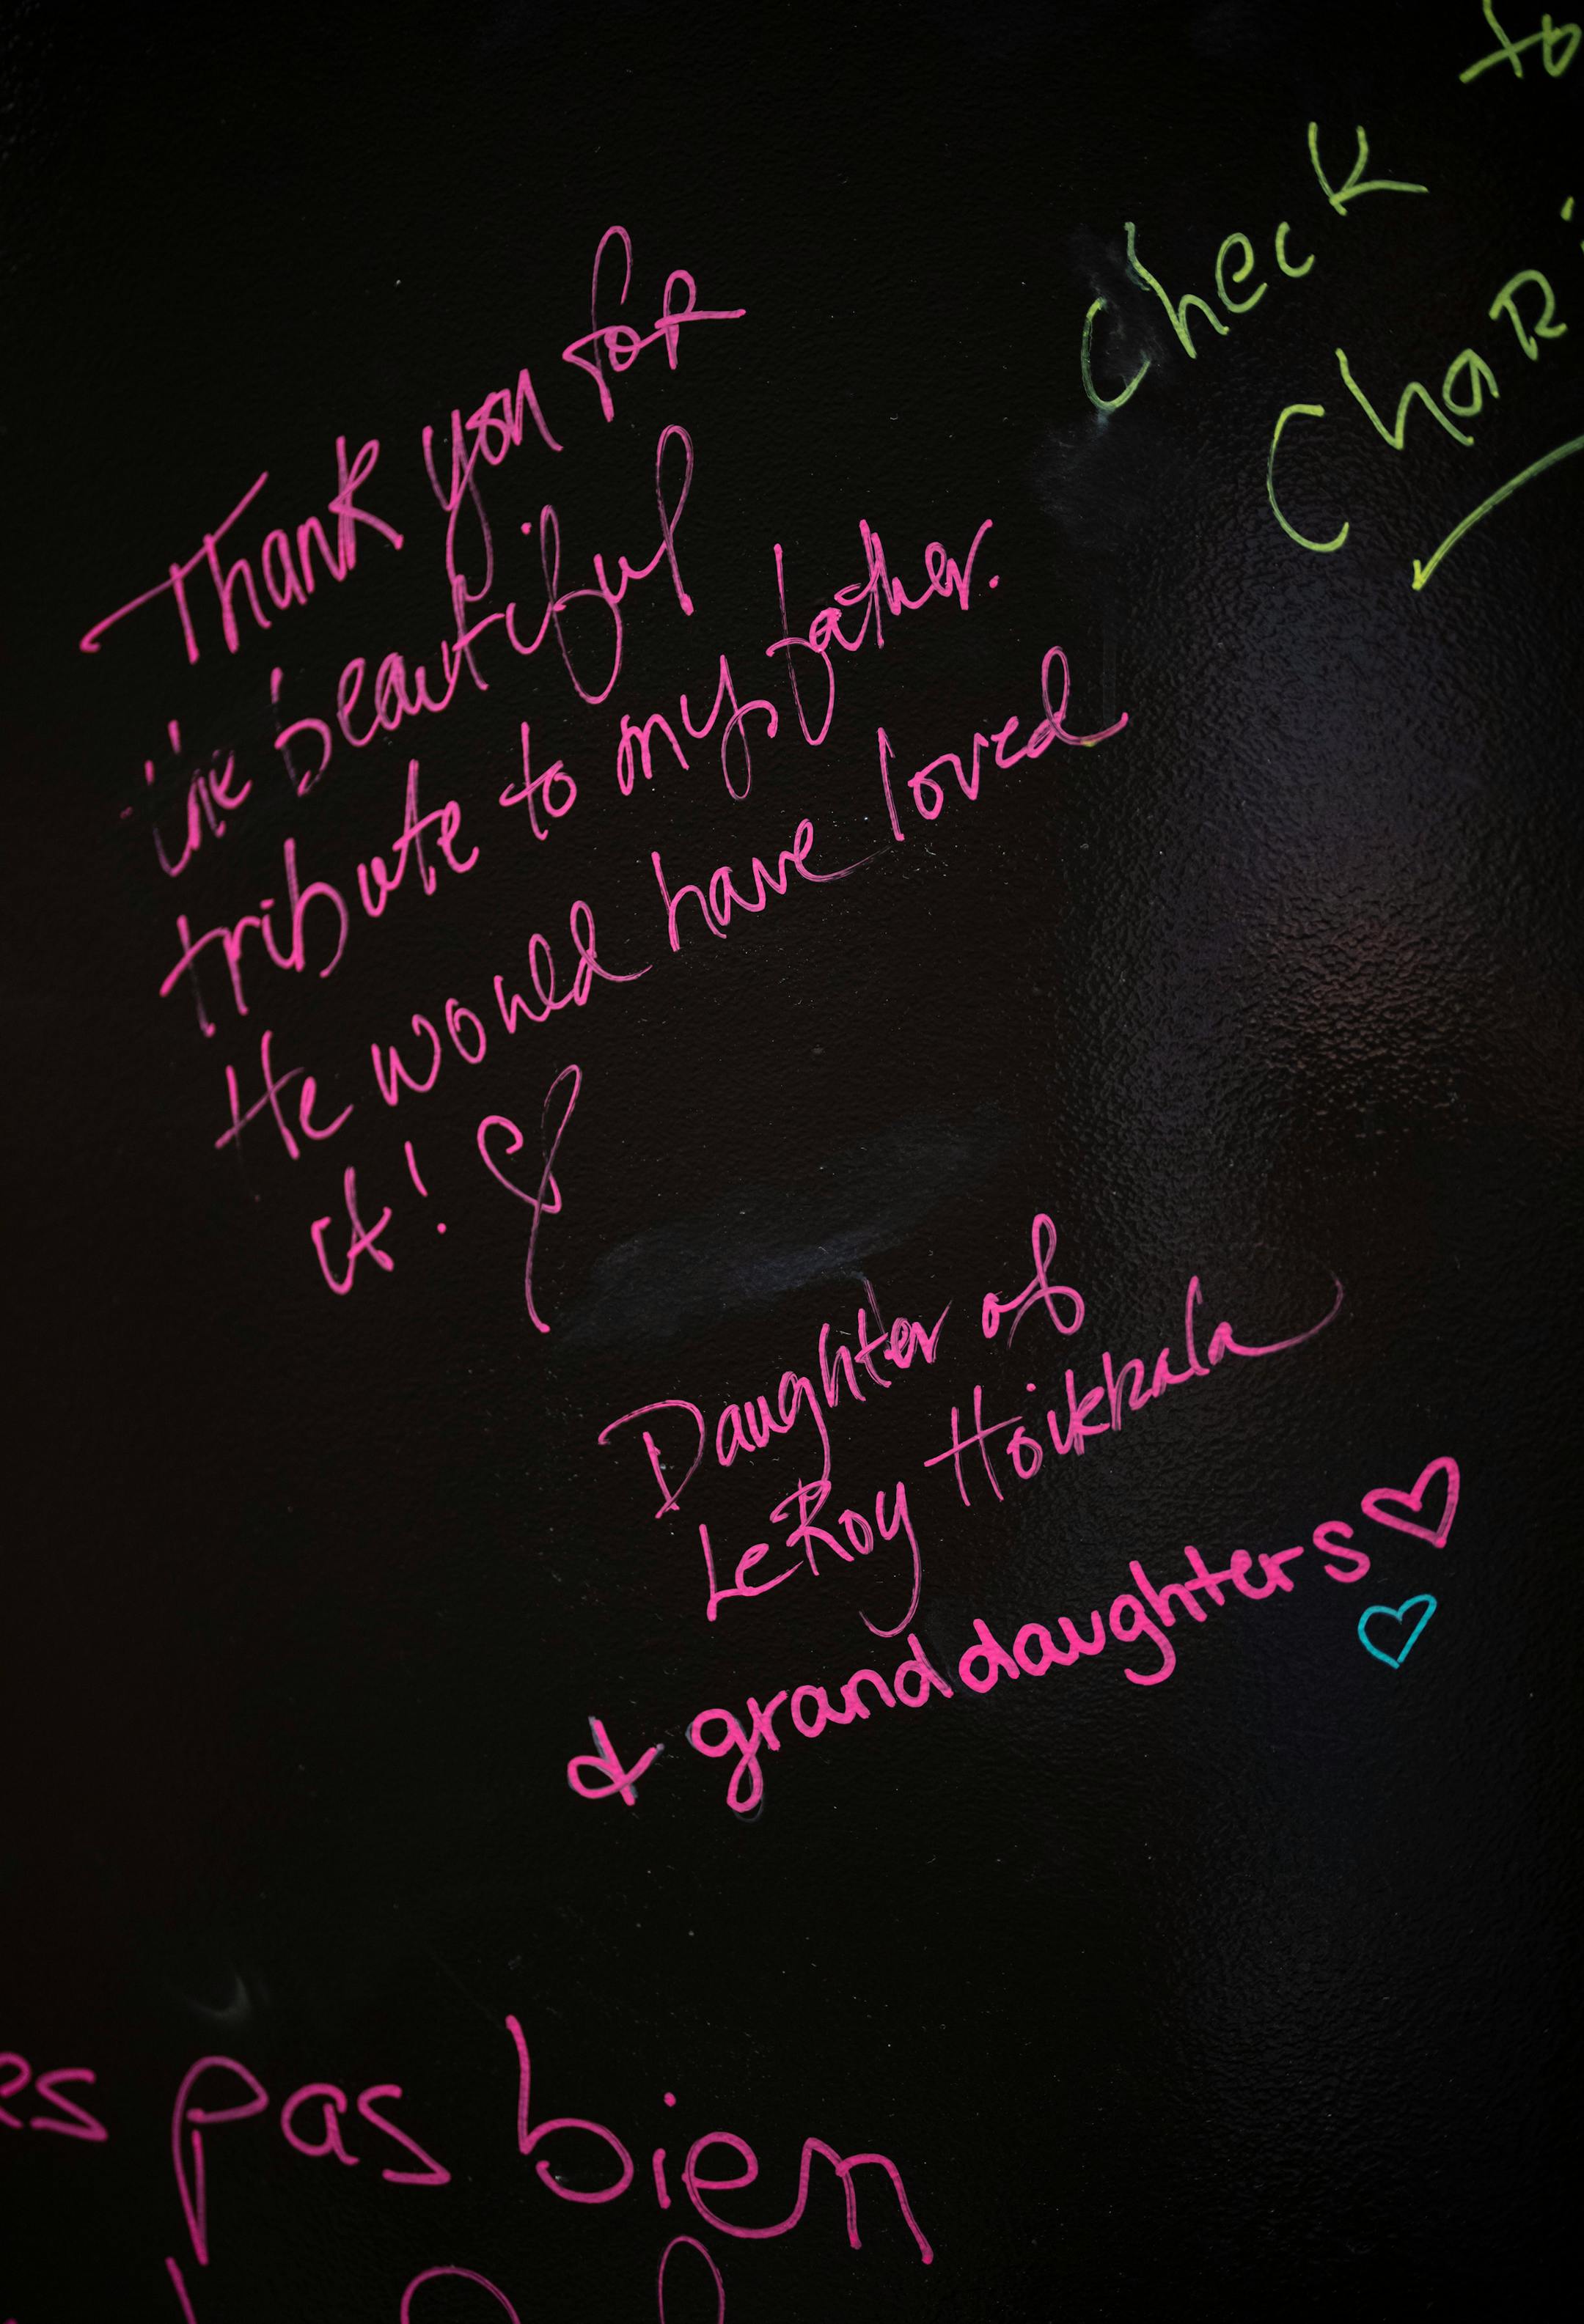 Thank you for
the beautiful
tribute to my father.
He would have loved
it!
Daughter of
LeRoy Hoikkala
& granddaughters
to
Check
Chari
es pas bien